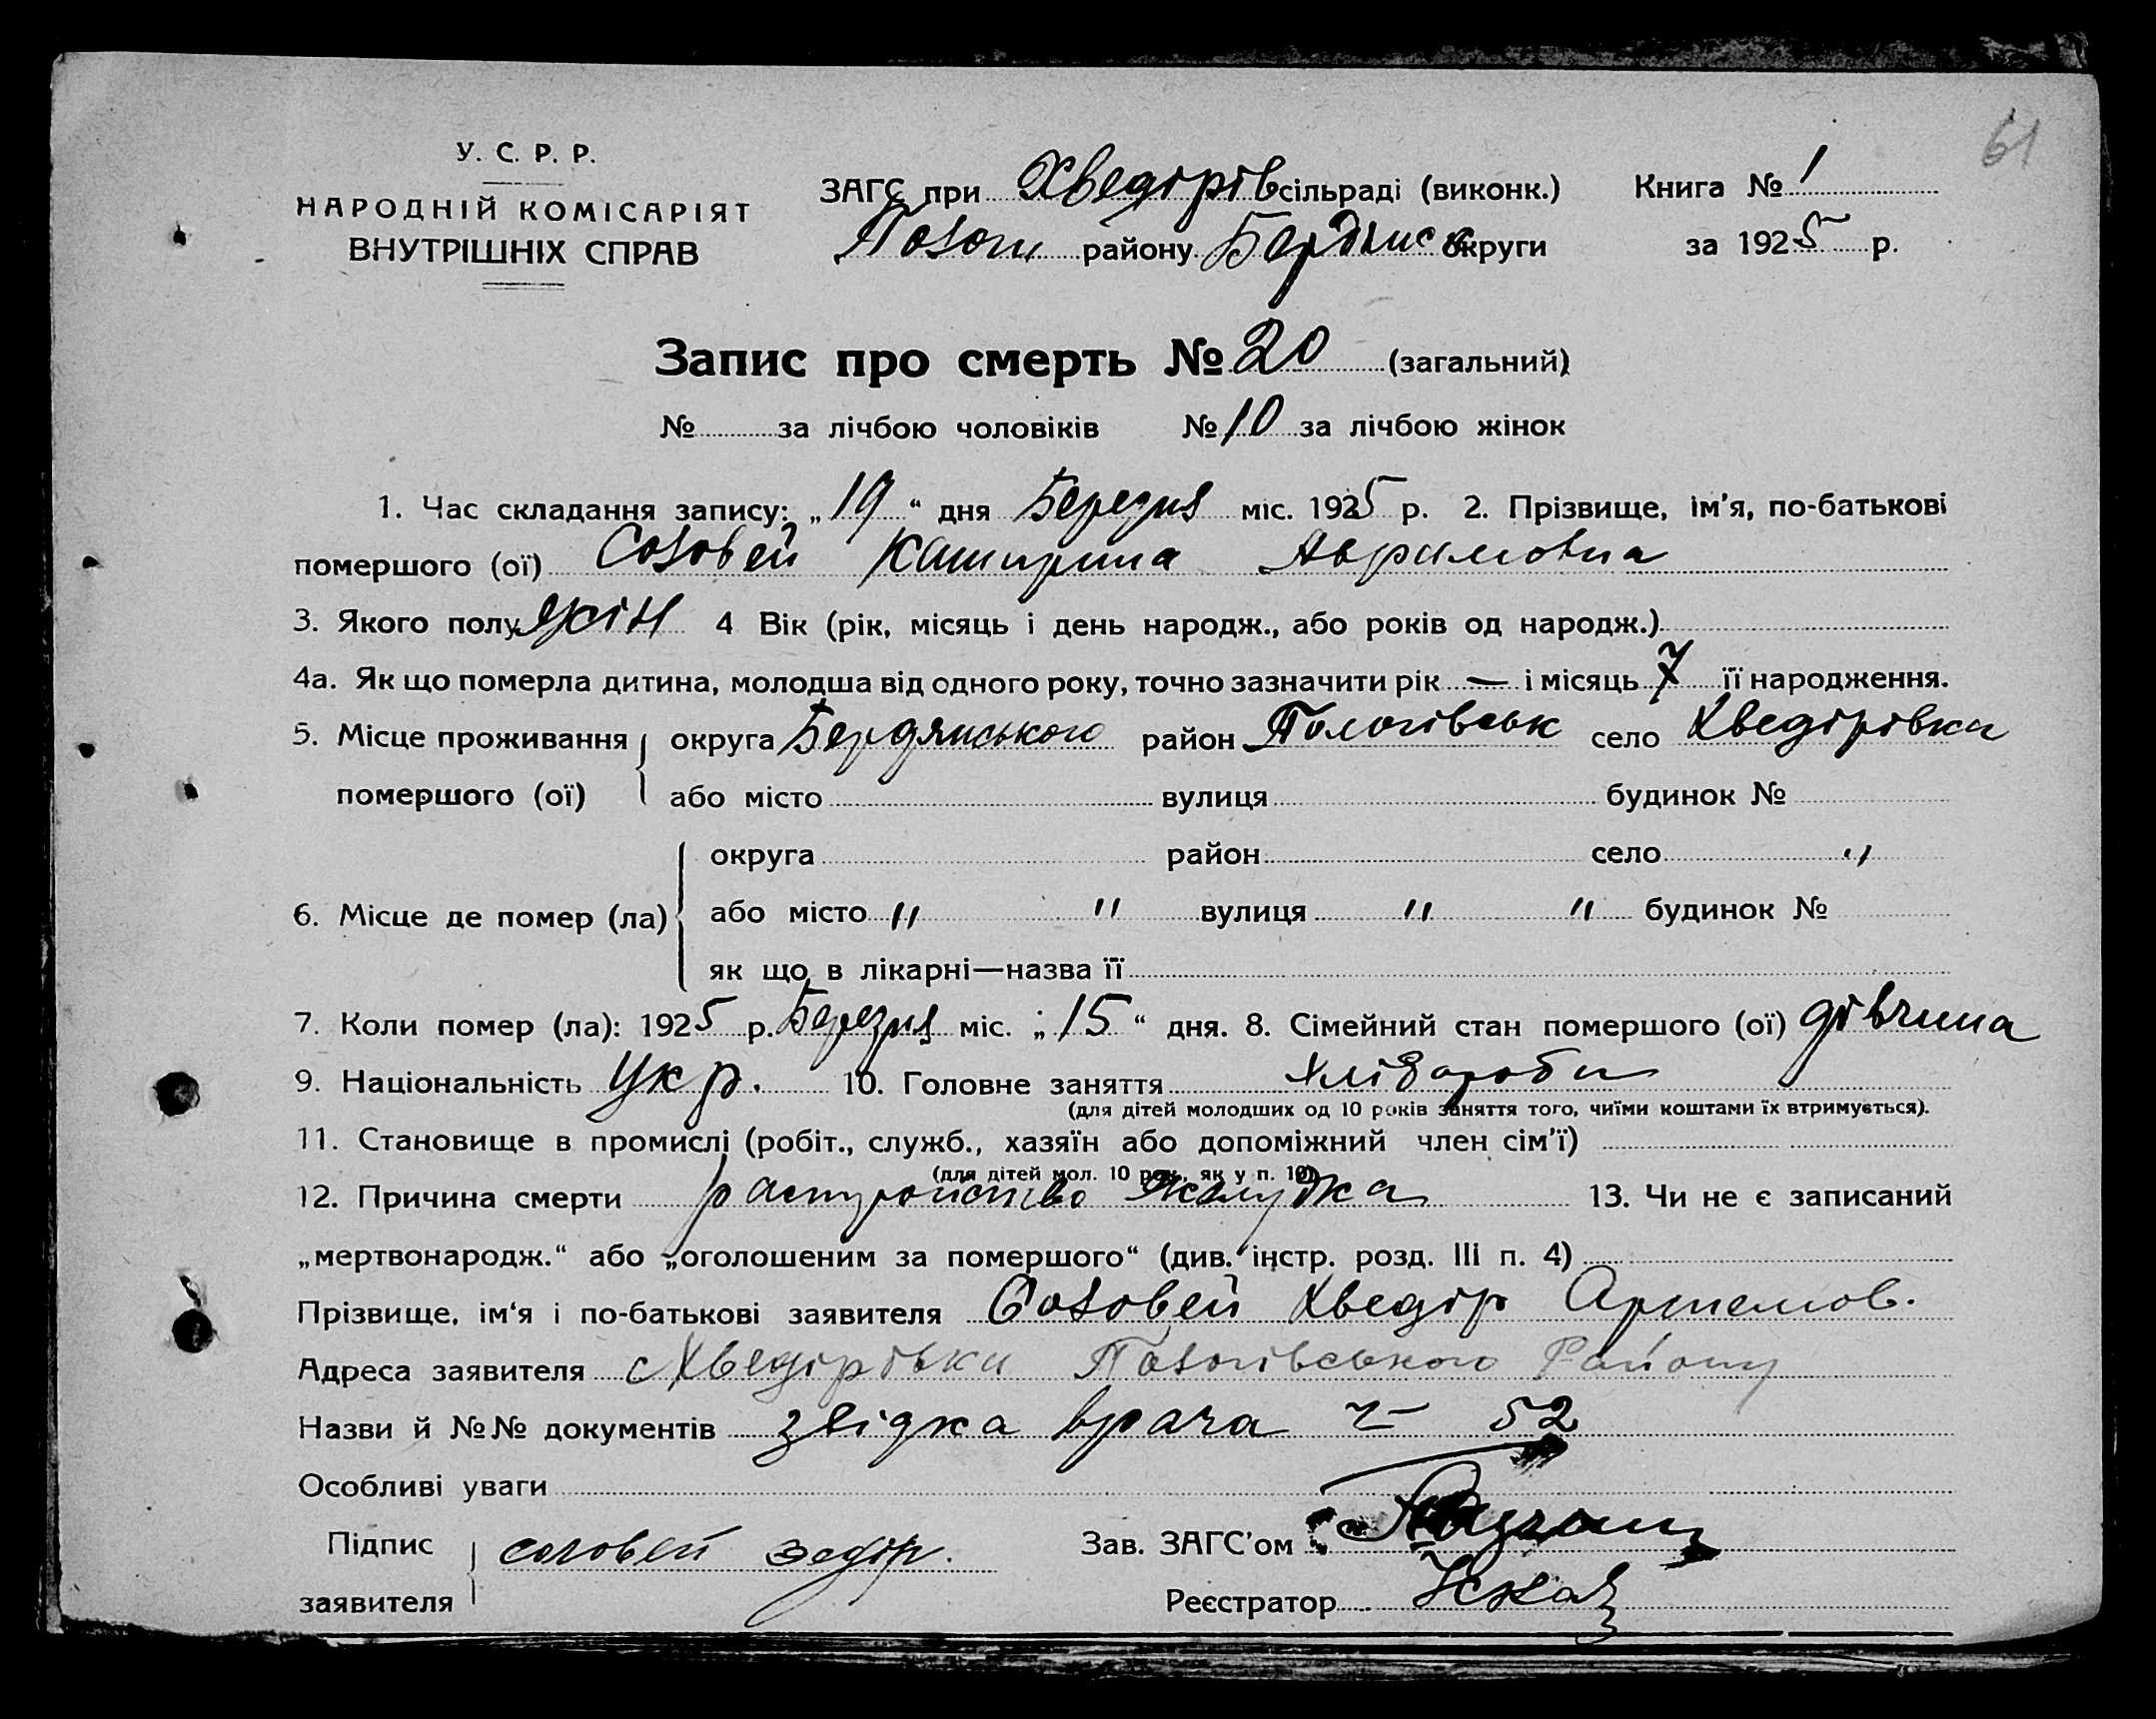 61
У. С. Р. Р.
НАРОДНІЙ КОМІСАРІЯТ
ВНУТРІШНІХ СПРАВ
ЗАГС при Хведірів сільраді (виконк.)
Полог району Бердянск округи
Книга № 1
за 1925 р.
Запис про смерть № 20 (загальний)
№ за лічбою чоловіків № 10 за лічбою жінок
1. Час складання запису: „19“ дня Березня міс. 1925 р. 2. Прізвище, ім'я, по-батькові
помершого (ої) Соловей Катирина Аврамовна
3. Якого полу жін 4 Вік (рік, місяць і день народж., або років од народж.)
4а. Як що померла дитина, молодша від одного року, точно зазначити рік — і місяць 7 її народження.
5. Місце проживання округа Бердянського район Пологівськ село Хведірівки
помершого (ої) або місто вулиця будинок №
округа район село "
6. Місце де помер (ла) або місто " " вулиця " " будинок №
як що в лікарні—назва її
7. Коли помер (ла): 1925 р. Березня міс. „15“ дня. 8. Сімейний стан помершого (ої) дівчина
9. Національність Укр. 10. Головне заняття хлібороби
(для дітей молодших од 10 років заняття того, чиїми коштами їх втримується).
11. Становище в промислі (робіт., служб., хазяїн або допоміжний член сім'ї)
(для дітей мол. 10 рок., як у п. 10)
12. Причина смерти растройство желудка 13. Чи не є записаний
„мертвонародж.“ або „оголошеним за помершого“ (див. інстр. розд. III п. 4)
Прізвище, ім'я і по-батькові заявителя Соловей Хведір Артемов.
Адреса заявителя с Хведірівки Пологівського Району
Назви й №№ документів звідка врача ч 52
Особливі уваги
Підпис соловей Зав. ЗАГС'ом
заявителя Реєстратор